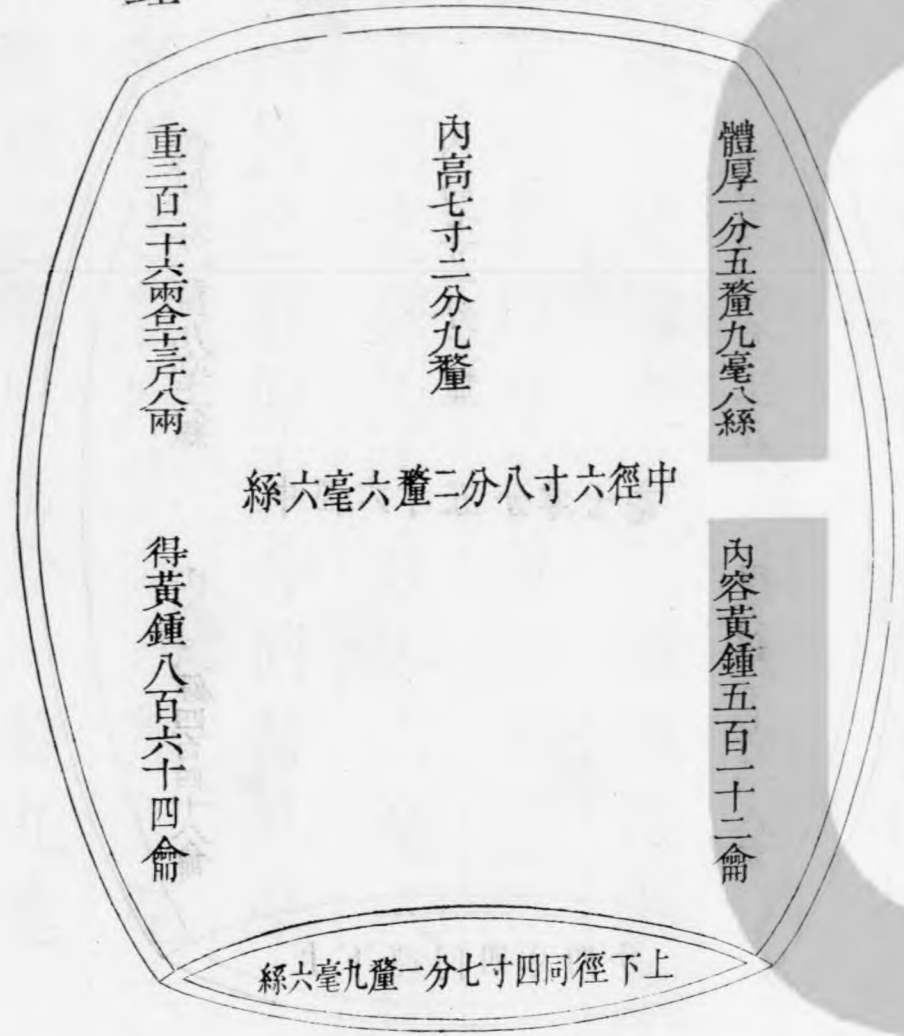 體厚一分五釐九毫八絲
內容黃鍾五百一十二龠
內高七寸二分九釐
中徑六寸八分二釐六毫六絲
重二百一十六兩合十三斤八兩
得黃鍾八百六十四龠
上下徑同四寸七分一釐九毫六絲